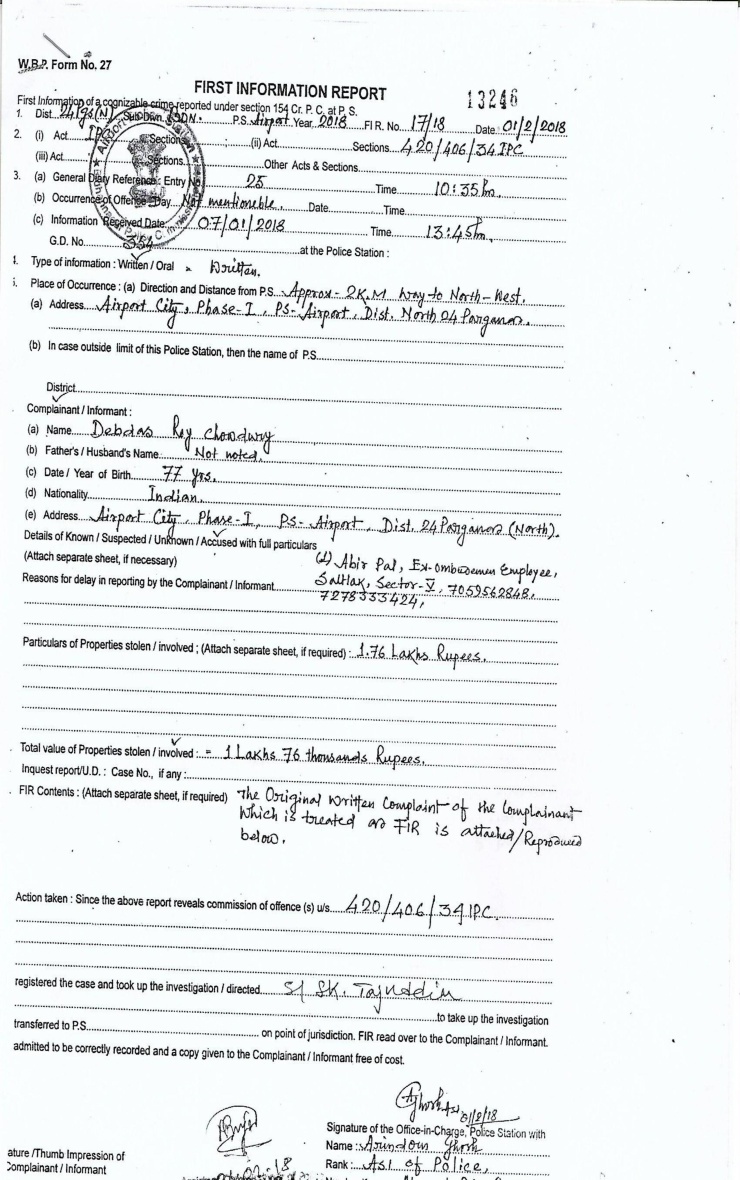 W.B.P. Form No. 27
FIRST INFORMATION REPORT
13246
First Information of a cognizable crime reported under section 154 Cr. P. C. at P. S.
1. Dist. 24 Pgs (N) Sub Divn. BDN. P.S. Airport Year 2018 FIR. No. 17/18 Date 01/2/2018
2. (i) Act IPC Sections (ii) Act Sections 420/406/34 IPC
(iii) Act Sections Other Acts & Sections
3. (a) General Diary Reference : Entry No. 25 Time 10:35 hr.
(b) Occurrence of Offence : Day Not mentionable. Date Time
(c) Information Received Date 07/01/2018 Time 13:45 hr.
G.D. No. 354 at the Police Station :
Type of information : Written / Oral Written.
Place of Occurrence : (a) Direction and Distance from P.S. Approx- 2K.M way to North-West.
(a) Address Airport City, Phase-I, PS- Airport, Dist. North 24 Parganas.
(b) In case outside limit of this Police Station, then the name of P.S.
District
Complainant / Informant :
(a) Name Debdas Roy Chowdury
(b) Father's / Husband's Name Not noted.
(c) Date / Year of Birth 77 yrs.
(d) Nationality Indian.
(e) Address Airport City, Phase-I, PS- Airport, Dist. 24 Parganas (North).
Details of Known / Suspected / Unknown / Accused with full particulars
(Attach separate sheet, if necessary) (1) Abir Pal, Ex-ombudsman Employee,
Reasons for delay in reporting by the Complainant / Informant Saltlak, Sector-V, 7059562848,
7278333424,
Particulars of Properties stolen / involved ; (Attach separate sheet, if required) : 1.76 Lakhs Rupees.
Total value of Properties stolen / involved : = 1 Lakhs 76 thousands Rupees.
Inquest report/U.D. : Case No., if any :
FIR Contents : (Attach separate sheet, if required) The Original Written Complaint of the Complainant
Which is treated as FIR is attached/Reproduced
below.
Action taken : Since the above report reveals commission of offence (s) u/s 420/406/34 IPC.
registered the case and took up the investigation / directed SI SK. Tajuddin
to take up the investigation
transferred to P.S. on point of jurisdiction. FIR read over to the Complainant / Informant.
admitted to be correctly recorded and a copy given to the Complainant / Informant free of cost.
01/2/18
Signature of the Office-in-Charge, Police Station with
Name : Arindom Ghosh
Rank : ASI of Police,
ature /Thumb Impression of
Complainant / Informant